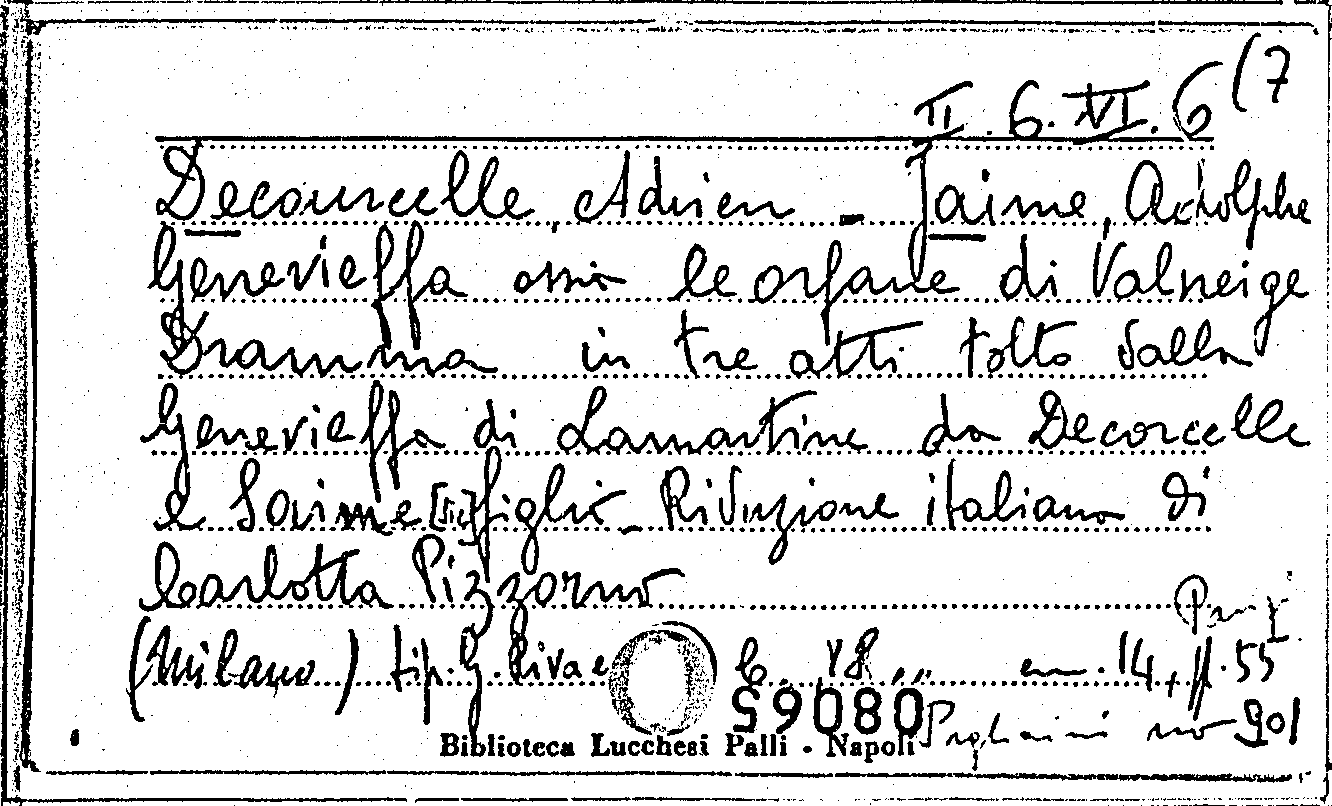 II. 6. VI. 6 (7
Decourcelle, Adrien - Jaime, Adolphe
Genevieffa ossia le orfane di Valneige
Dramma in tre atti tolto dalla
Genevieffa di Lamartine da Decorcelle
e Saime [sic] figlio - Riduzione italiana di
Carlotta Pizzorno
(Milano) tip. G. Riva e C. 18,, cm. 14, pp. 55
59080 no 901
Biblioteca Lucchesi Palli - Napoli